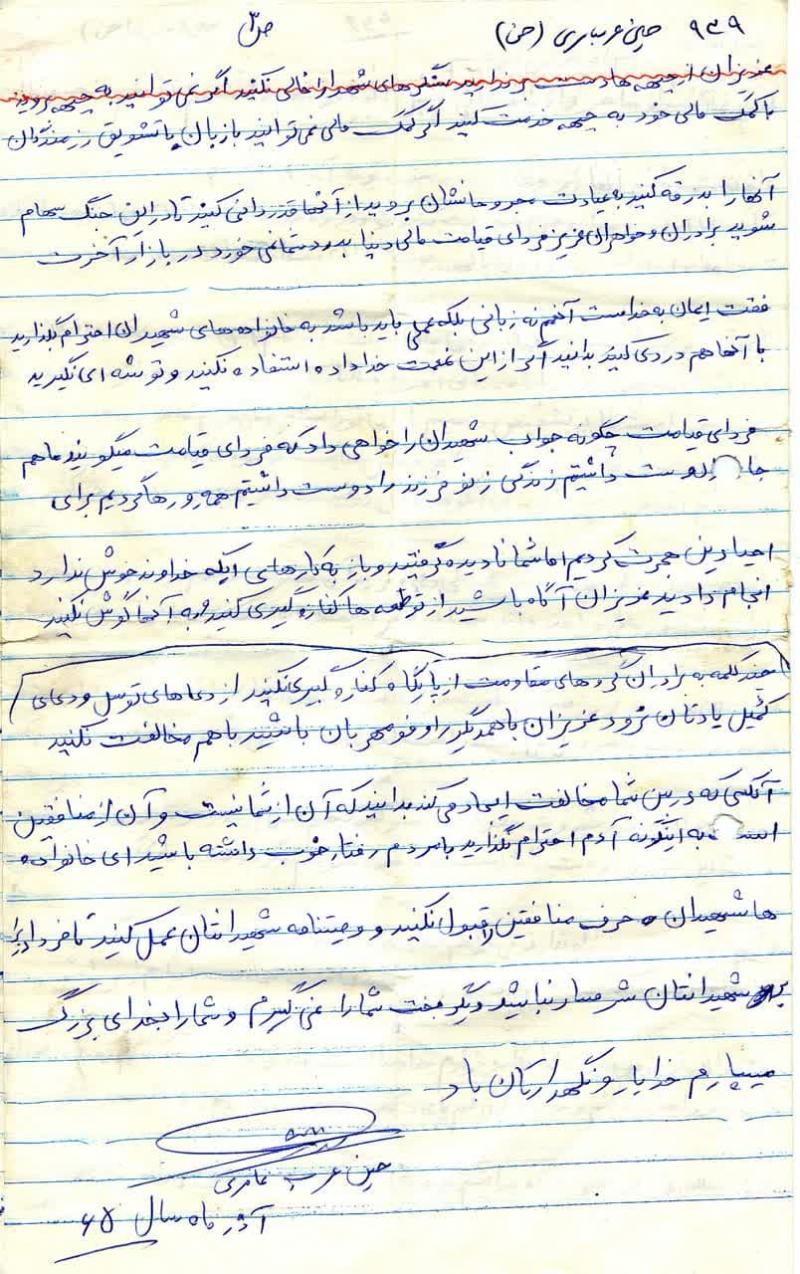 ۹۳۹ حسین عرب عامری (حسن) ص ۳
عزیزان از جبهه ها دست برندارید سنگرهای شهدا را خالی نکنید اگر نمی توانید به جبهه بروید
با کمک مالی خود به جبهه خدمت کنید اگر کمک مالی نمی توانید با زبان یا تشویق رزمندگان
آنها را بدرقه کنید به عیادت مجروحانشان بروید از آنها قدردانی کنید تا در این جنگ سهام
شوید برادران و خواهران عزیز فردای قیامت مالی دنیا بدرد شما نمی خورد در بازار آخرت
فقت ایمان به خداست آنهم نه زبانی بلکه عملی باید باشد به خانواده های شهیدان احترام بگذارید
با آنها هم دردی کنید بدانید اگر از این نعمت خداداده استفاده نکنید و توشه ای نگیرید
فردای قیامت چگونه جواب شهیدان را خواهی داد که فردای قیامت میگویند ما هم
دوست داشتیم زندگی زن و فرزند را دوست داشتیم همه رو رها کردیم برای
احیا دین هجرت کردیم اما شما نادیده گرفتید و باز به کارهای اینکه خداوند خوش ندارد
انجام دادید عزیزان آگاه باشید از توطعه ها کناره گیری کنید و به آنها گوش نکنید
چند کلمه به برادران گروهای مقاومت از پایگاه کناره گیری نکنید از دعاهای توسل و دعای
کمیل یادتان نرود عزیزان با همدیگر راوف و مهربان باشید با هم مخالفت نکنید
آنکسی که در بین شما مخالفت ایجاد می کند بدانید که آن از شما نیست و آن از منافقین
است به اینگونه آدم احترام نگذارید با مردم رفتار خوب داشته باشید ای خانواده
ها شهیدان حرف منافقین را قبول نکنید و وصیتنامه شهیدانتان عمل کنید تا فردا
شهیدانتان شرمسار نباشید دیگر وقت شما را نمی گیرم و شما را بخدای بزرگ
میسپارم خدا یار و نگهدارتان باد
حسین عرب عامری
آذر ماه سال ۶۵